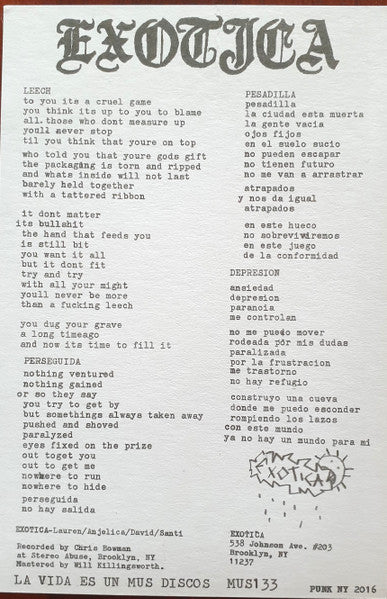 EXOTICA
LEECH
to you its a cruel game
you think its up to you to blame
all those who dont measure up
youll never stop
til you think that youre on top
who told you that youre gods gift
the packaging is torn and ripped
and whats inside will not last
barely held together
with a tattered ribbon
it dont matter
its bullshit
the hand that feeds you
is still bit
you want it all
but it dont fit
try and try
with all your might
youll never be more
than a fucking leech
you dug your grave
a long timeago
and now its time to fill it
PERSEGUIDA
nothing ventured
nothing gained
or so they say
you try to get by
but somethings always taken away
pushed and shoved
paralyzed
eyes fixed on the prize
out toget you
out to get me
nowhere to run
nowhere to hide
perseguida
no hay salida
PESADILLA
pesadilla
la ciudad esta muerta
la gente vacia
ojos fijos
en el suelo sucio
no pueden escapar
no tienen futuro
no me van a arrastrar
atrapados
y nos da igual
atrapados
en este hueco
no sobreviviremos
en este juego
de la conformidad
DEPRESION
ansiedad
depresion
paranoia
me controlan
no me puedo mover
rodeada pór mis dudas
paralizada
por la frustracion
me trastorno
no hay refugio
construyo una cueva
donde me puedo esconder
rompiendo los lazos
con este mundo
ya no hay un mundo para mi
EXOTICA
EXOTICA-Lauren/Anjelica/David/Santi
Recorded by Chris Bowman
at Stereo Abuse, Brooklyn, NY
Mastered by Will Killingsworth.
EXOTICA
538 Johnson Ave. #203
Brooklyn, NY
11237
LA VIDA ES UN MUS DISCOS MUS133
PUNK NY 2016